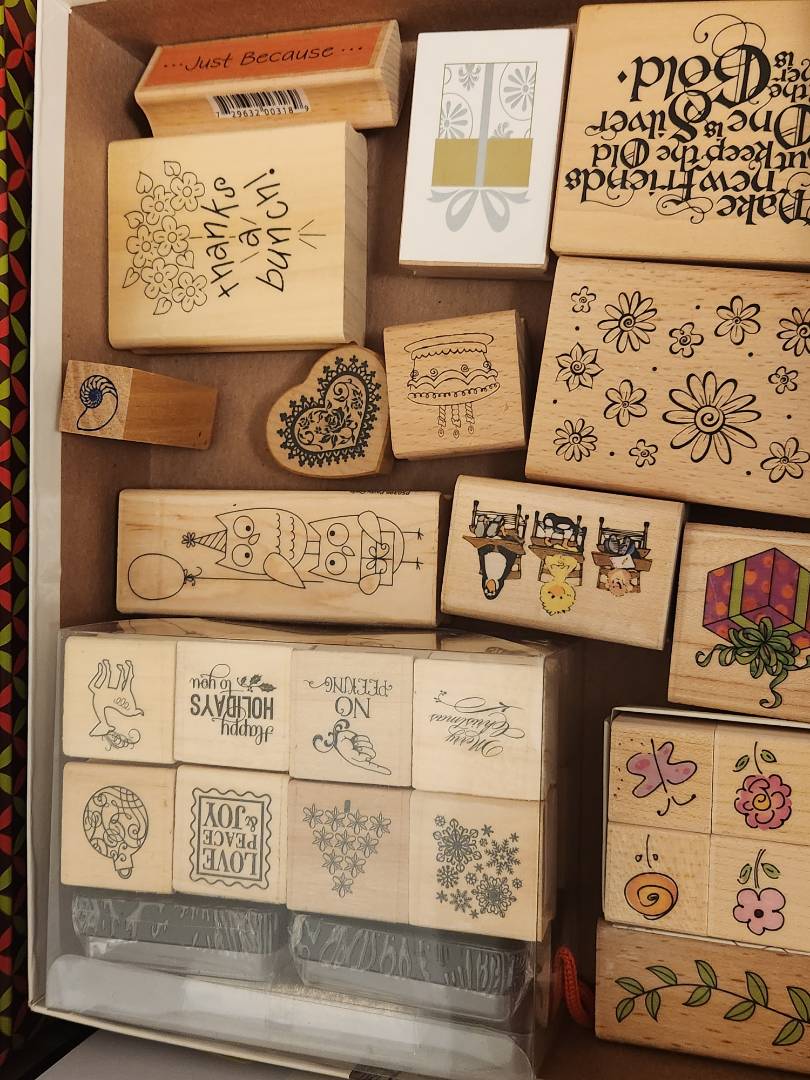 ...Just Because...
7 29632 00318 9
thanks
a
bunch!
Make
new friends
but keep the Old
One is Silver
the
is
Gold.
Happy
HOLIDAYS
to you
NO
PEEKING
Merry
Christmas
LOVE
PEACE
& JOY